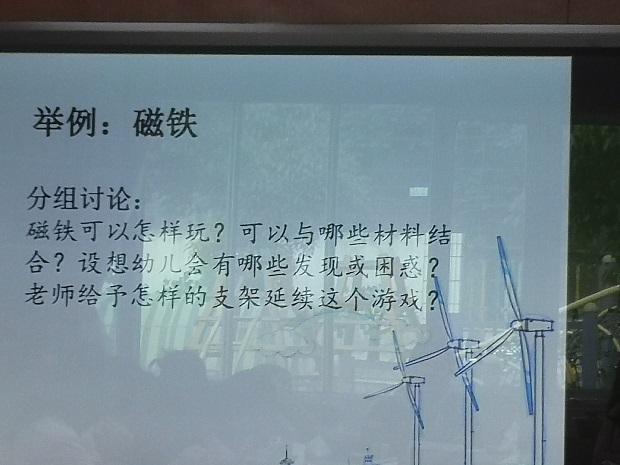 举例：磁铁
分组讨论：
磁铁可以怎样玩？可以与哪些材料结
合？设想幼儿会有哪些发现或困惑？
老师给予怎样的支架延续这个游戏？